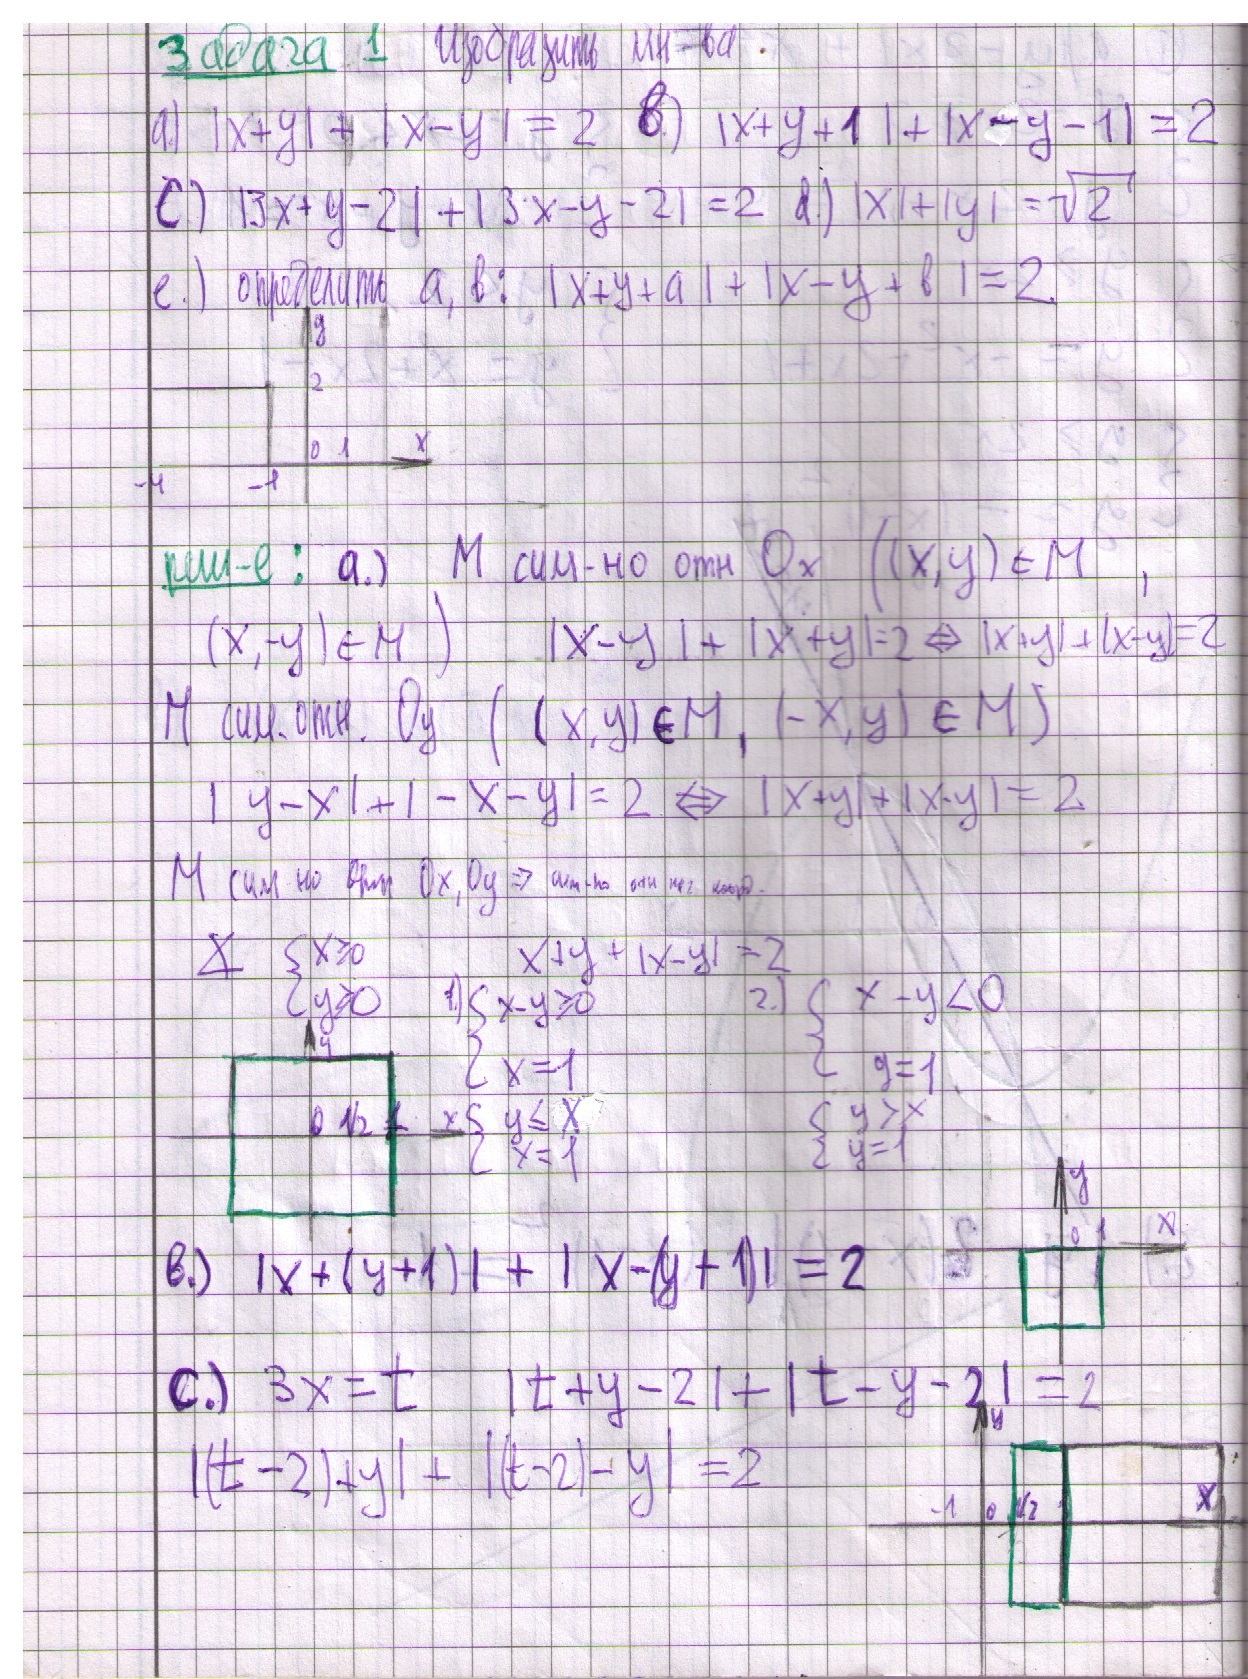 Задача 1 Изобразить мн-ва.
a.) |x+y| + |x-y| = 2 в) |x+y+1| + |x-y-1| = 2
c.) |3x+y-2| + |3x-y-2| = 2 d.) |x|+|y| = √2
e.) определить a, в: |x+y+a| + |x-y+в| = 2
y
2
0 1 x
-4 -1
реш-е: a.) М сим-но отн Ox ((x,y) ∈ M,
(x,-y) ∈ M) |x-y| + |x+y| = 2 ⇔ |x+y| + |x-y| = 2
М сим. отн. Oy ((x,y) ∈ M, (-x,y) ∈ M)
|y-x| + |-x-y| = 2 ⇔ |x+y| + |x-y| = 2
М сим-но отн Ox, Oy ⇒ сим-но отн нач коорд.
I { x≥0 x+y + |x-y| = 2
{ y≥0 1.) { x-y≥0 2.) { x-y<0
y { x=1 { y=1
0 1/2 1 x { y≤x { y>x
{ x=1 { y=1
y
0 1 x
в.) |x+(y+1)| + |x-(y+1)| = 2
c.) 3x=t |t+y-2| + |t-y-2| = 2
y
|(t-2)+y| + |(t-2)-y| = 2
-1 0 1/2 x